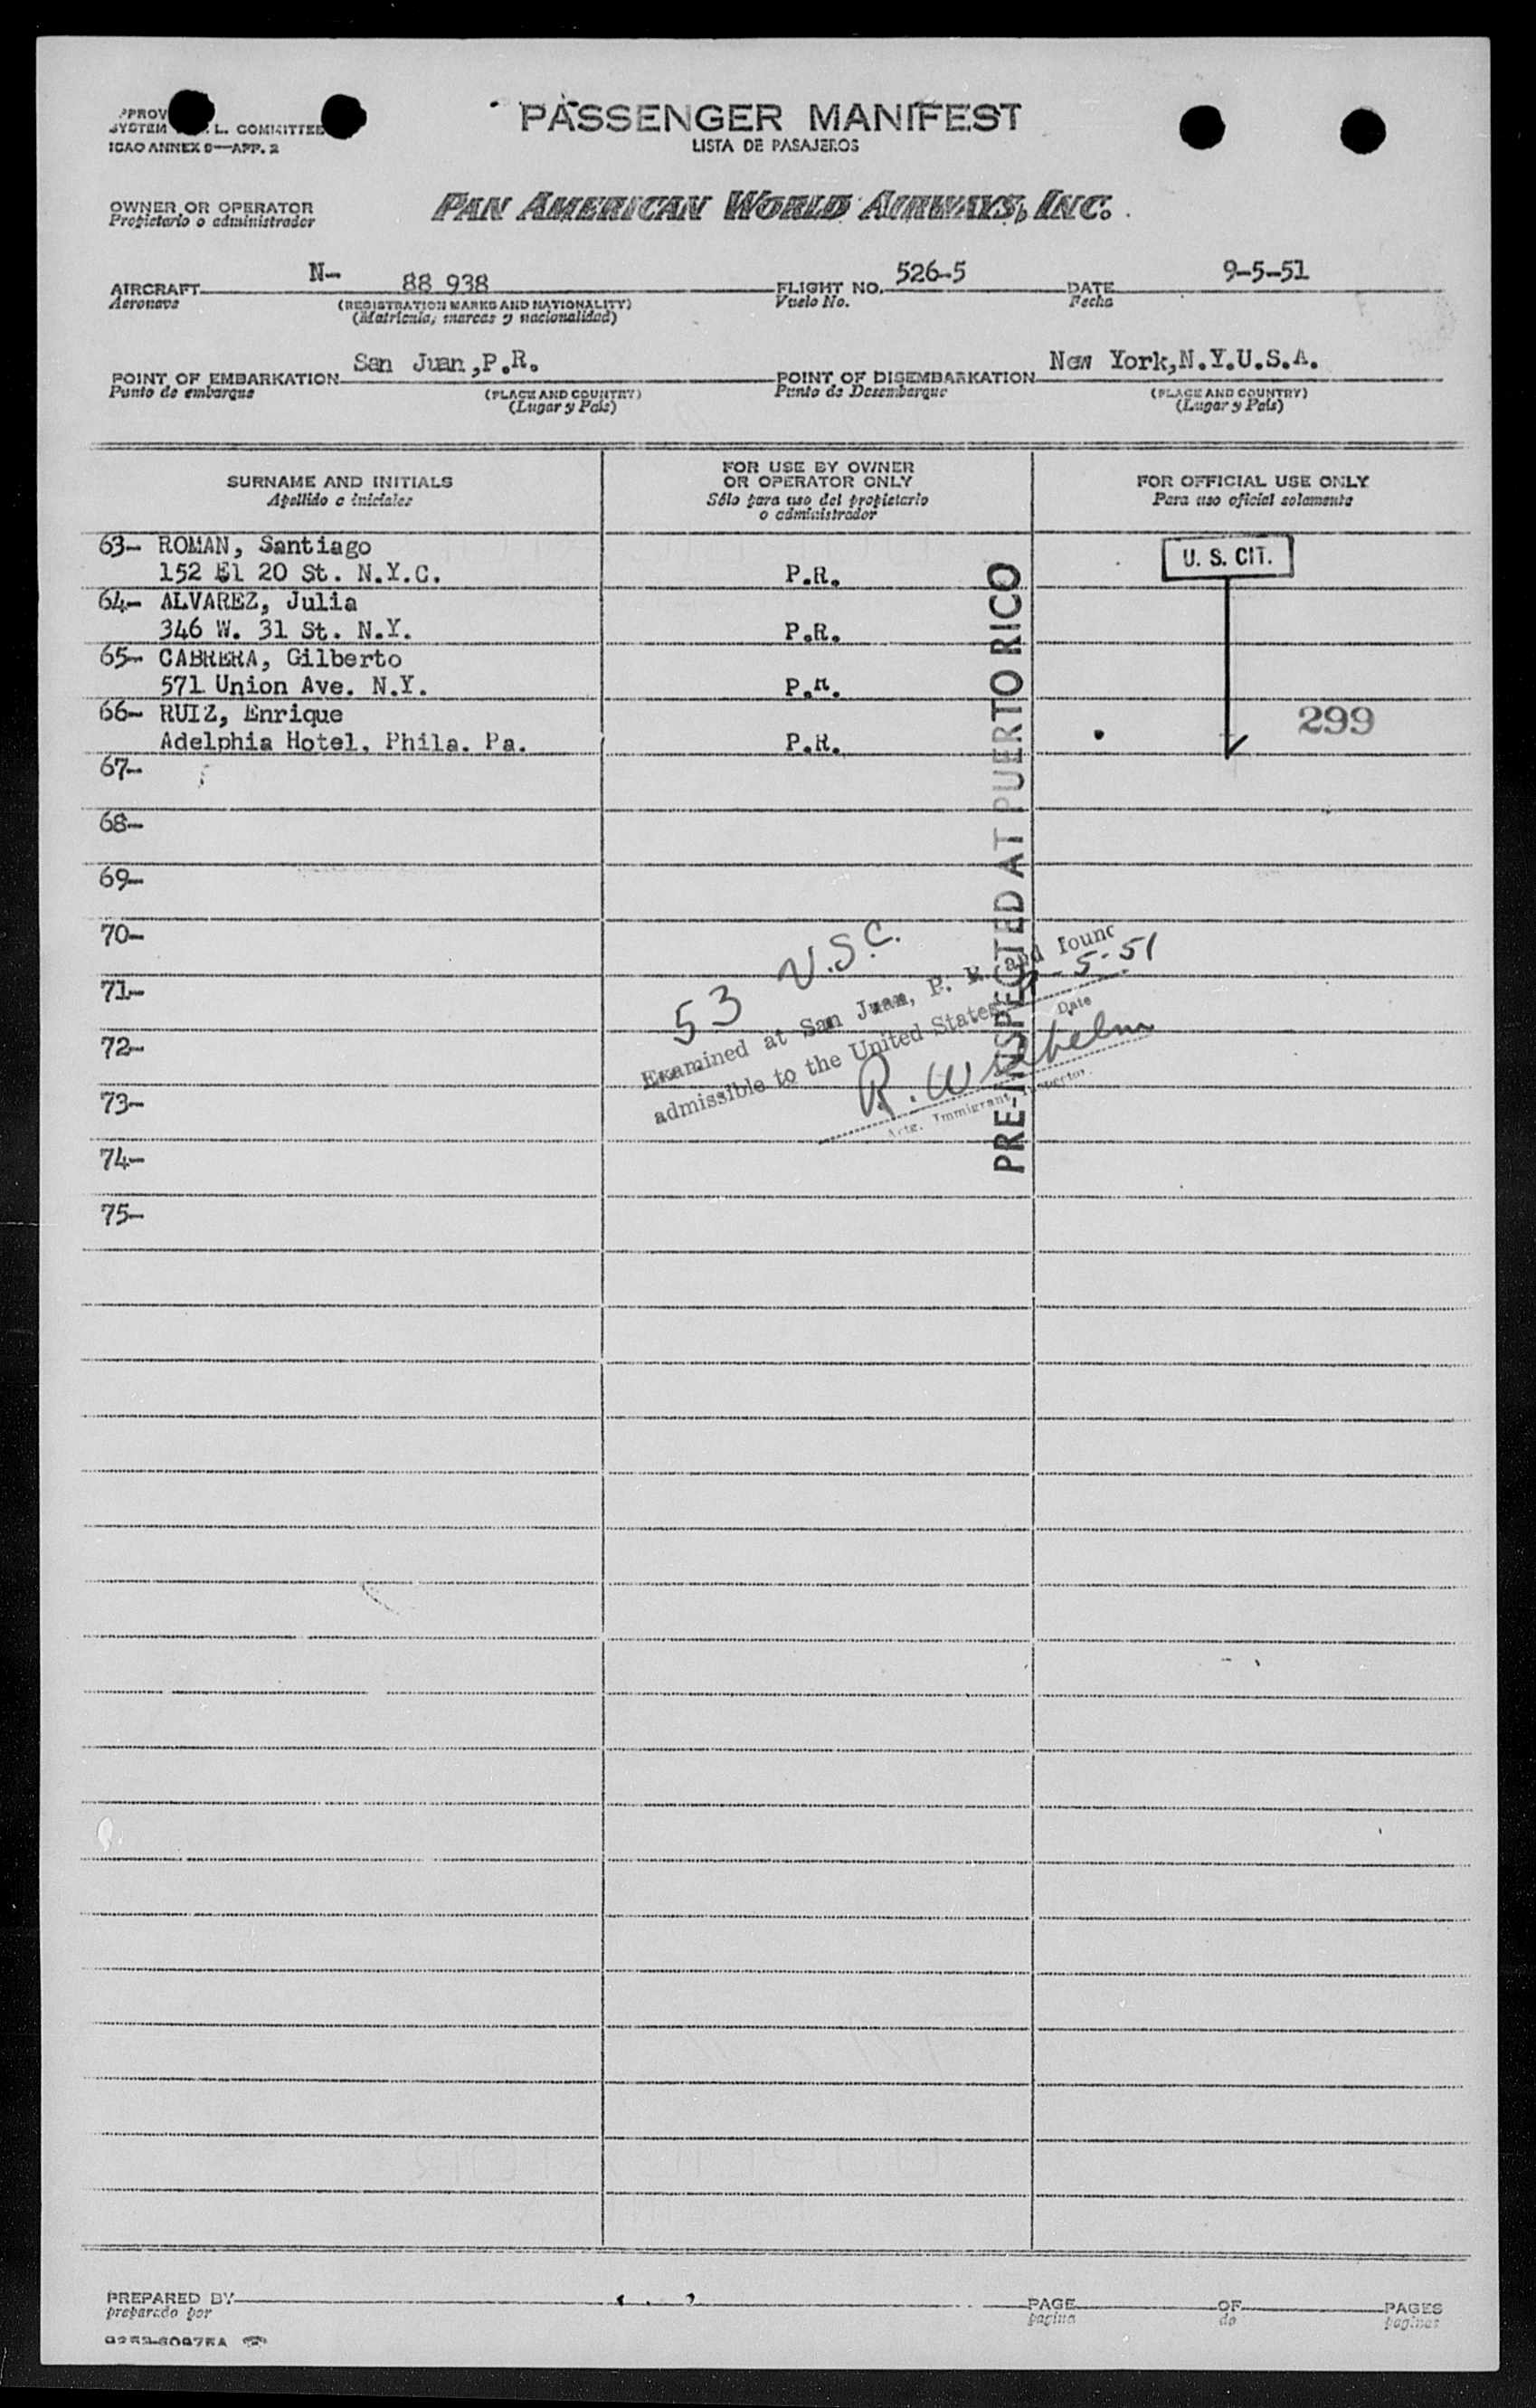 PASSENGER MANIFEST
LISTA DE PASAJEROS
SYSTEM L. COMMITTEE
ICAO ANNEX 9—APP. 2
OWNER OR OPERATOR
Propietario o administrador
PAN AMERICAN WORLD AIRWAYS, INC.
AIRCRAFT N- 88 938 FLIGHT NO. 526-5 DATE 9-5-51
Aeronave (REGISTRATION MARKS AND NATIONALITY) Vuelo No. Fecha
(Matricula, marcas y nacionalidad)
POINT OF EMBARKATION San Juan,P.R. POINT OF DISEMBARKATION New York,N.Y.U.S.A.
Punto de embarque (PLACE AND COUNTRY) Punto de Desembarque (PLACE AND COUNTRY)
(Lugar y País) (Lugar y País)
SURNAME AND INITIALS
Apellido e iniciales
FOR USE BY OWNER
OR OPERATOR ONLY
Sólo para uso del propietario
o administrador
FOR OFFICIAL USE ONLY
Para uso oficial solamente
63- ROMAN, Santiago
152 El 20 St. N.Y.C. P.R.
U. S. CIT.
64- ALVAREZ, Julia
346 W. 31 St. N.Y. P.R.
65- CABRERA, Gilberto
571 Union Ave. N.Y. P.R.
66- RUIZ, Enrique
Adelphia Hotel, Phila. Pa. P.R.
299
67-
68-
69-
70-
71-
72-
73-
74-
75-
PRE-INSPECTED AT PUERTO RICO
53 U.S.C.
Examined at San Juan, P. R. and found
admissible to the United States 9-5-51
Date
R. Wilhelm
Actg. Immigrant Inspector.
PREPARED BY PAGE OF PAGES
preparado por pagina de paginas